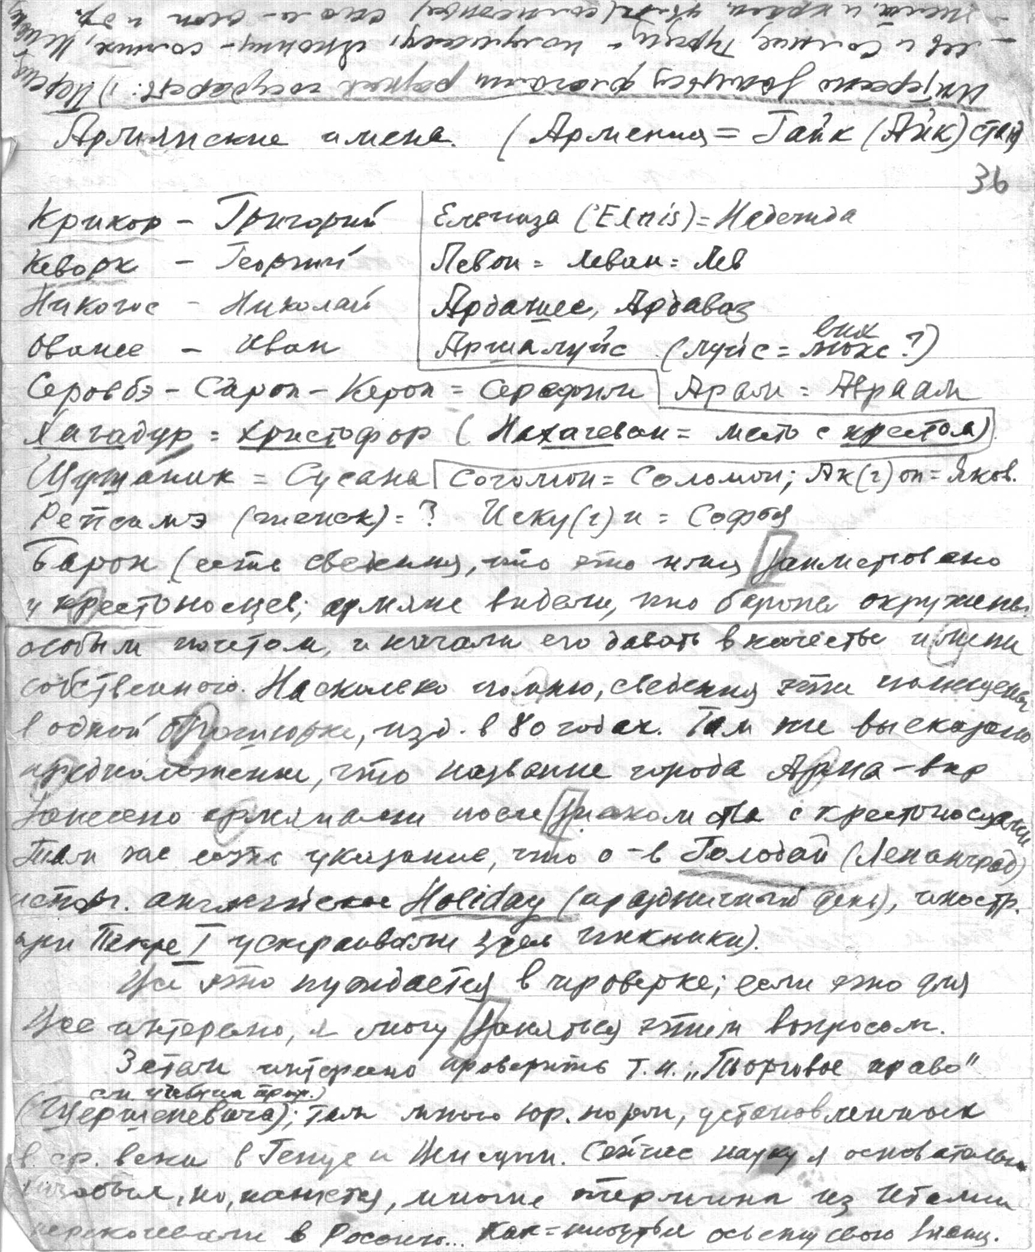 Интересно заняться флагами разных государств: 1) Персия
- лев и солнце, Турция - полумесяц, Япония - солнце,
Армянские имена. (Армения = Гайк (Айк) стан)
36
Крикор - Григорий
Кеворк - Георгий
Никогос - Николай
Ованес - Иван
Елениза ('Ελπίς) = Надежда
Левон = Леван = Лев
Ардашес, Ардаваз
Аршалуйс (луйс = люкс?)
Серовбэ - Сароп - Кероп = Серафим
Арам = Авраам
Хагадур = Христофор (Нахачеван = место с крестом)
Шушаник = Сусана
Согомон = Соломон; Ак(г)оп = Яков.
Репсимэ (женск) = ? Искуг(г)и = Софья
Барон (есть сведения, что это имя заимствовано
у крестоносцев; армяне видели, что бароны окружены
особым почетом, и начали его давать в качестве имени
собственного. Насколько помню, сведения эти помещены
в одной брошюрке, изд. в 80 годах. Там же высказано
предположение, что название города Арма-вир
занесено армянами после знакомства с крестоносцами
Там же есть указание, что о-в Голодай (Ленинград)
испорч. английское Holiday (праздничный день), иностр.
при Петре I устраивали здесь пикники).
Все это нуждается в проверке; если это для
Вас интересно, я могу заняться этим вопросом.
Затем интересно проверить т.н. „Торговое право"
(Шершеневича); там много юр. норм, установленных
в ср. века в Генуе и Венеции. Сейчас науку я основательно
позабыл, но, кажется, многие термины из Италии
перекочевали в Россию... как-нибудь